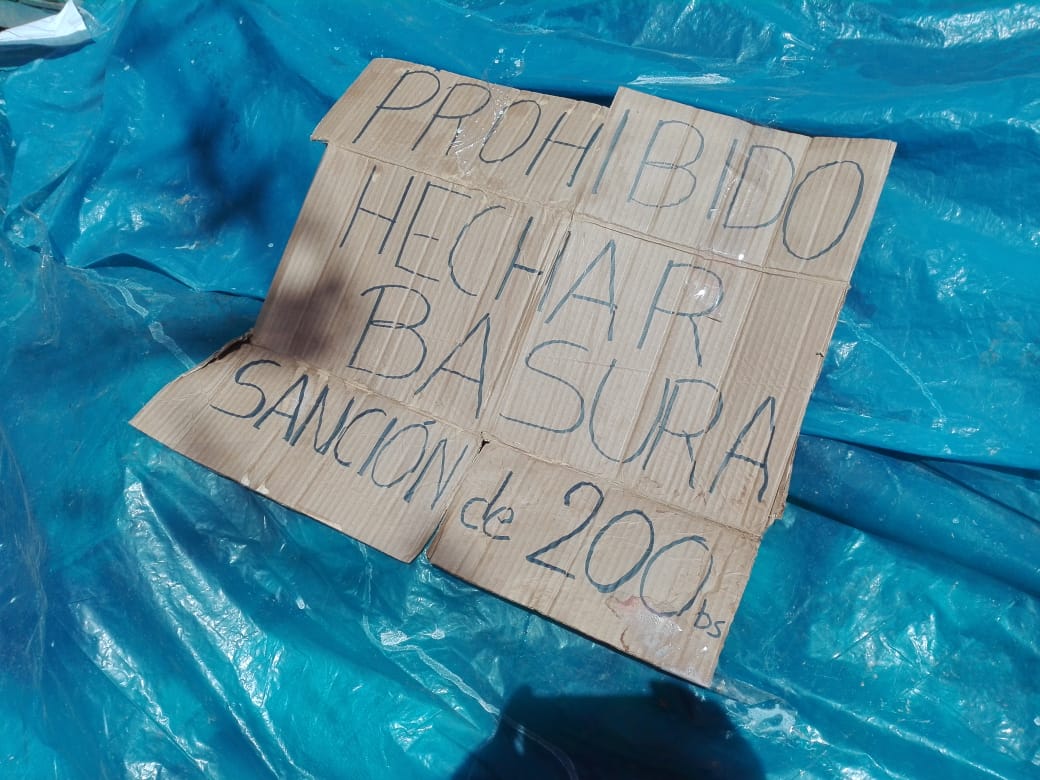 PROHIBIDO
HECHAR
BASURA
SANCIÓN de 200 bs